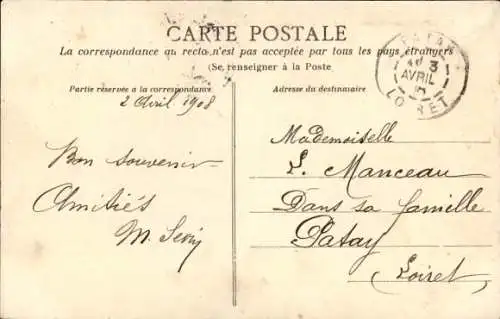 CARTE POSTALE
La correspondance au recto n'est pas acceptée par tous les pays étrangers
(Se renseigner à la Poste
Partie réservée à la correspondance
Adresse du destinataire
PATAY
3
AVRIL
LOIRET
2 Avril 1908
Bon souvenir
Amitiés
M.
Mademoiselle
L. Manceau
Dans sa famille
Patay
Loiret